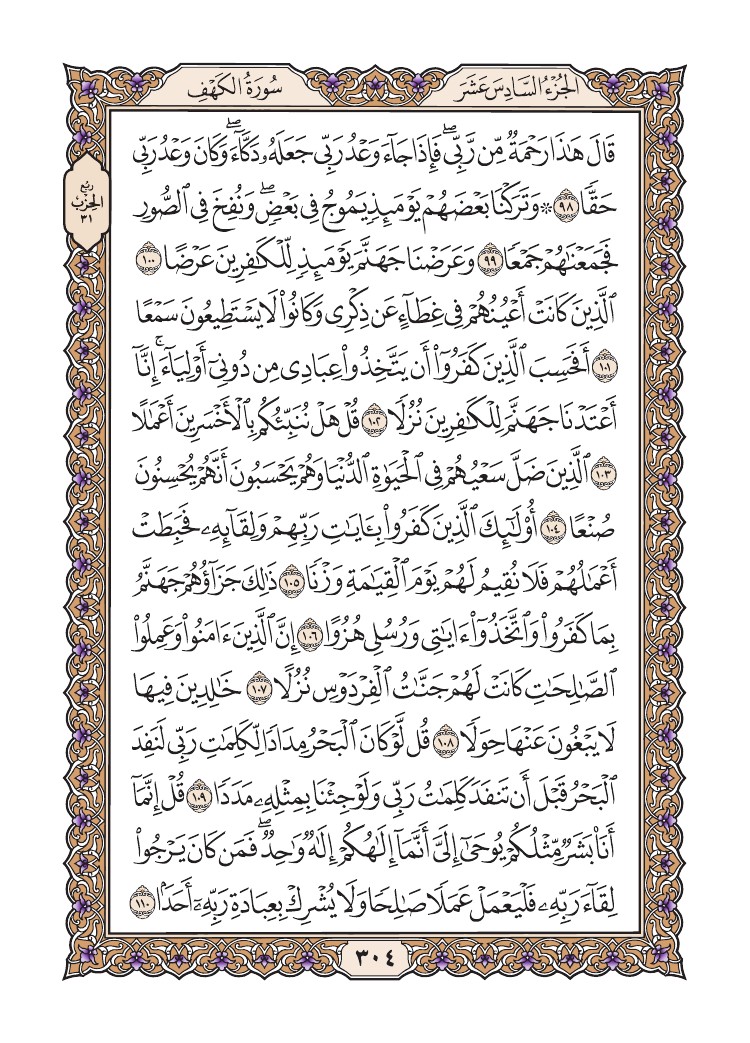 الجُزْءُ السَّادِسَ عَشَرَ
سُورَةُ الكَهْفِ
رُبُع
الحِزْب
٣١
قَالَ هَٰذَا رَحْمَةٌ مِّن رَّبِّي ۖ فَإِذَا جَآءَ وَعْدُ رَبِّي جَعَلَهُۥ دَكَّآءَ ۖ وَكَانَ وَعْدُ رَبِّي
حَقًّا ٩٨ ۞ وَتَرَكْنَا بَعْضَهُمْ يَوْمَئِذٍ يَمُوجُ فِي بَعْضٍ ۖ وَنُفِخَ فِي ٱلصُّورِ
فَجَمَعْنَٰهُمْ جَمْعًا ٩٩ وَعَرَضْنَا جَهَنَّمَ يَوْمَئِذٍ لِّلْكَٰفِرِينَ عَرْضًا ١٠٠
ٱلَّذِينَ كَانَتْ أَعْيُنُهُمْ فِي غِطَآءٍ عَن ذِكْرِي وَكَانُوا۟ لَا يَسْتَطِيعُونَ سَمْعًا
١٠١ أَفَحَسِبَ ٱلَّذِينَ كَفَرُوٓا۟ أَن يَتَّخِذُوا۟ عِبَادِي مِن دُونِيٓ أَوْلِيَآءَ ۚ إِنَّآ
أَعْتَدْنَا جَهَنَّمَ لِلْكَٰفِرِينَ نُزُلًا ١٠٢ قُلْ هَلْ نُنَبِّئُكُم بِٱلْأَخْسَرِينَ أَعْمَٰلًا
١٠٣ ٱلَّذِينَ ضَلَّ سَعْيُهُمْ فِي ٱلْحَيَوٰةِ ٱلدُّنْيَا وَهُمْ يَحْسَبُونَ أَنَّهُمْ يُحْسِنُونَ
صُنْعًا ١٠٤ أُو۟لَٰٓئِكَ ٱلَّذِينَ كَفَرُوا۟ بِـَٔايَٰتِ رَبِّهِمْ وَلِقَآئِهِۦ فَحَبِطَتْ
أَعْمَٰلُهُمْ فَلَا نُقِيمُ لَهُمْ يَوْمَ ٱلْقِيَٰمَةِ وَزْنًا ١٠٥ ذَٰلِكَ جَزَآؤُهُمْ جَهَنَّمُ
بِمَا كَفَرُوا۟ وَٱتَّخَذُوٓا۟ ءَايَٰتِي وَرُسُلِي هُزُوًا ١٠٦ إِنَّ ٱلَّذِينَ ءَامَنُوا۟ وَعَمِلُوا۟
ٱلصَّٰلِحَٰتِ كَانَتْ لَهُمْ جَنَّٰتُ ٱلْفِرْدَوْسِ نُزُلًا ١٠٧ خَٰلِدِينَ فِيهَا
لَا يَبْغُونَ عَنْهَا حِوَلًا ١٠٨ قُل لَّوْ كَانَ ٱلْبَحْرُ مِدَادًا لِّكَلِمَٰتِ رَبِّي لَنَفِدَ
ٱلْبَحْرُ قَبْلَ أَن تَنفَدَ كَلِمَٰتُ رَبِّي وَلَوْ جِئْنَا بِمِثْلِهِۦ مَدَدًا ١٠٩ قُلْ إِنَّمَآ
أَنَا۠ بَشَرٌ مِّثْلُكُمْ يُوحَىٰٓ إِلَيَّ أَنَّمَآ إِلَٰهُكُمْ إِلَٰهٌ وَٰحِدٌ ۖ فَمَن كَانَ يَرْجُوا۟
لِقَآءَ رَبِّهِۦ فَلْيَعْمَلْ عَمَلًا صَٰلِحًا وَلَا يُشْرِكْ بِعِبَادَةِ رَبِّهِۦٓ أَحَدًۢا ١١٠
٣٠٤